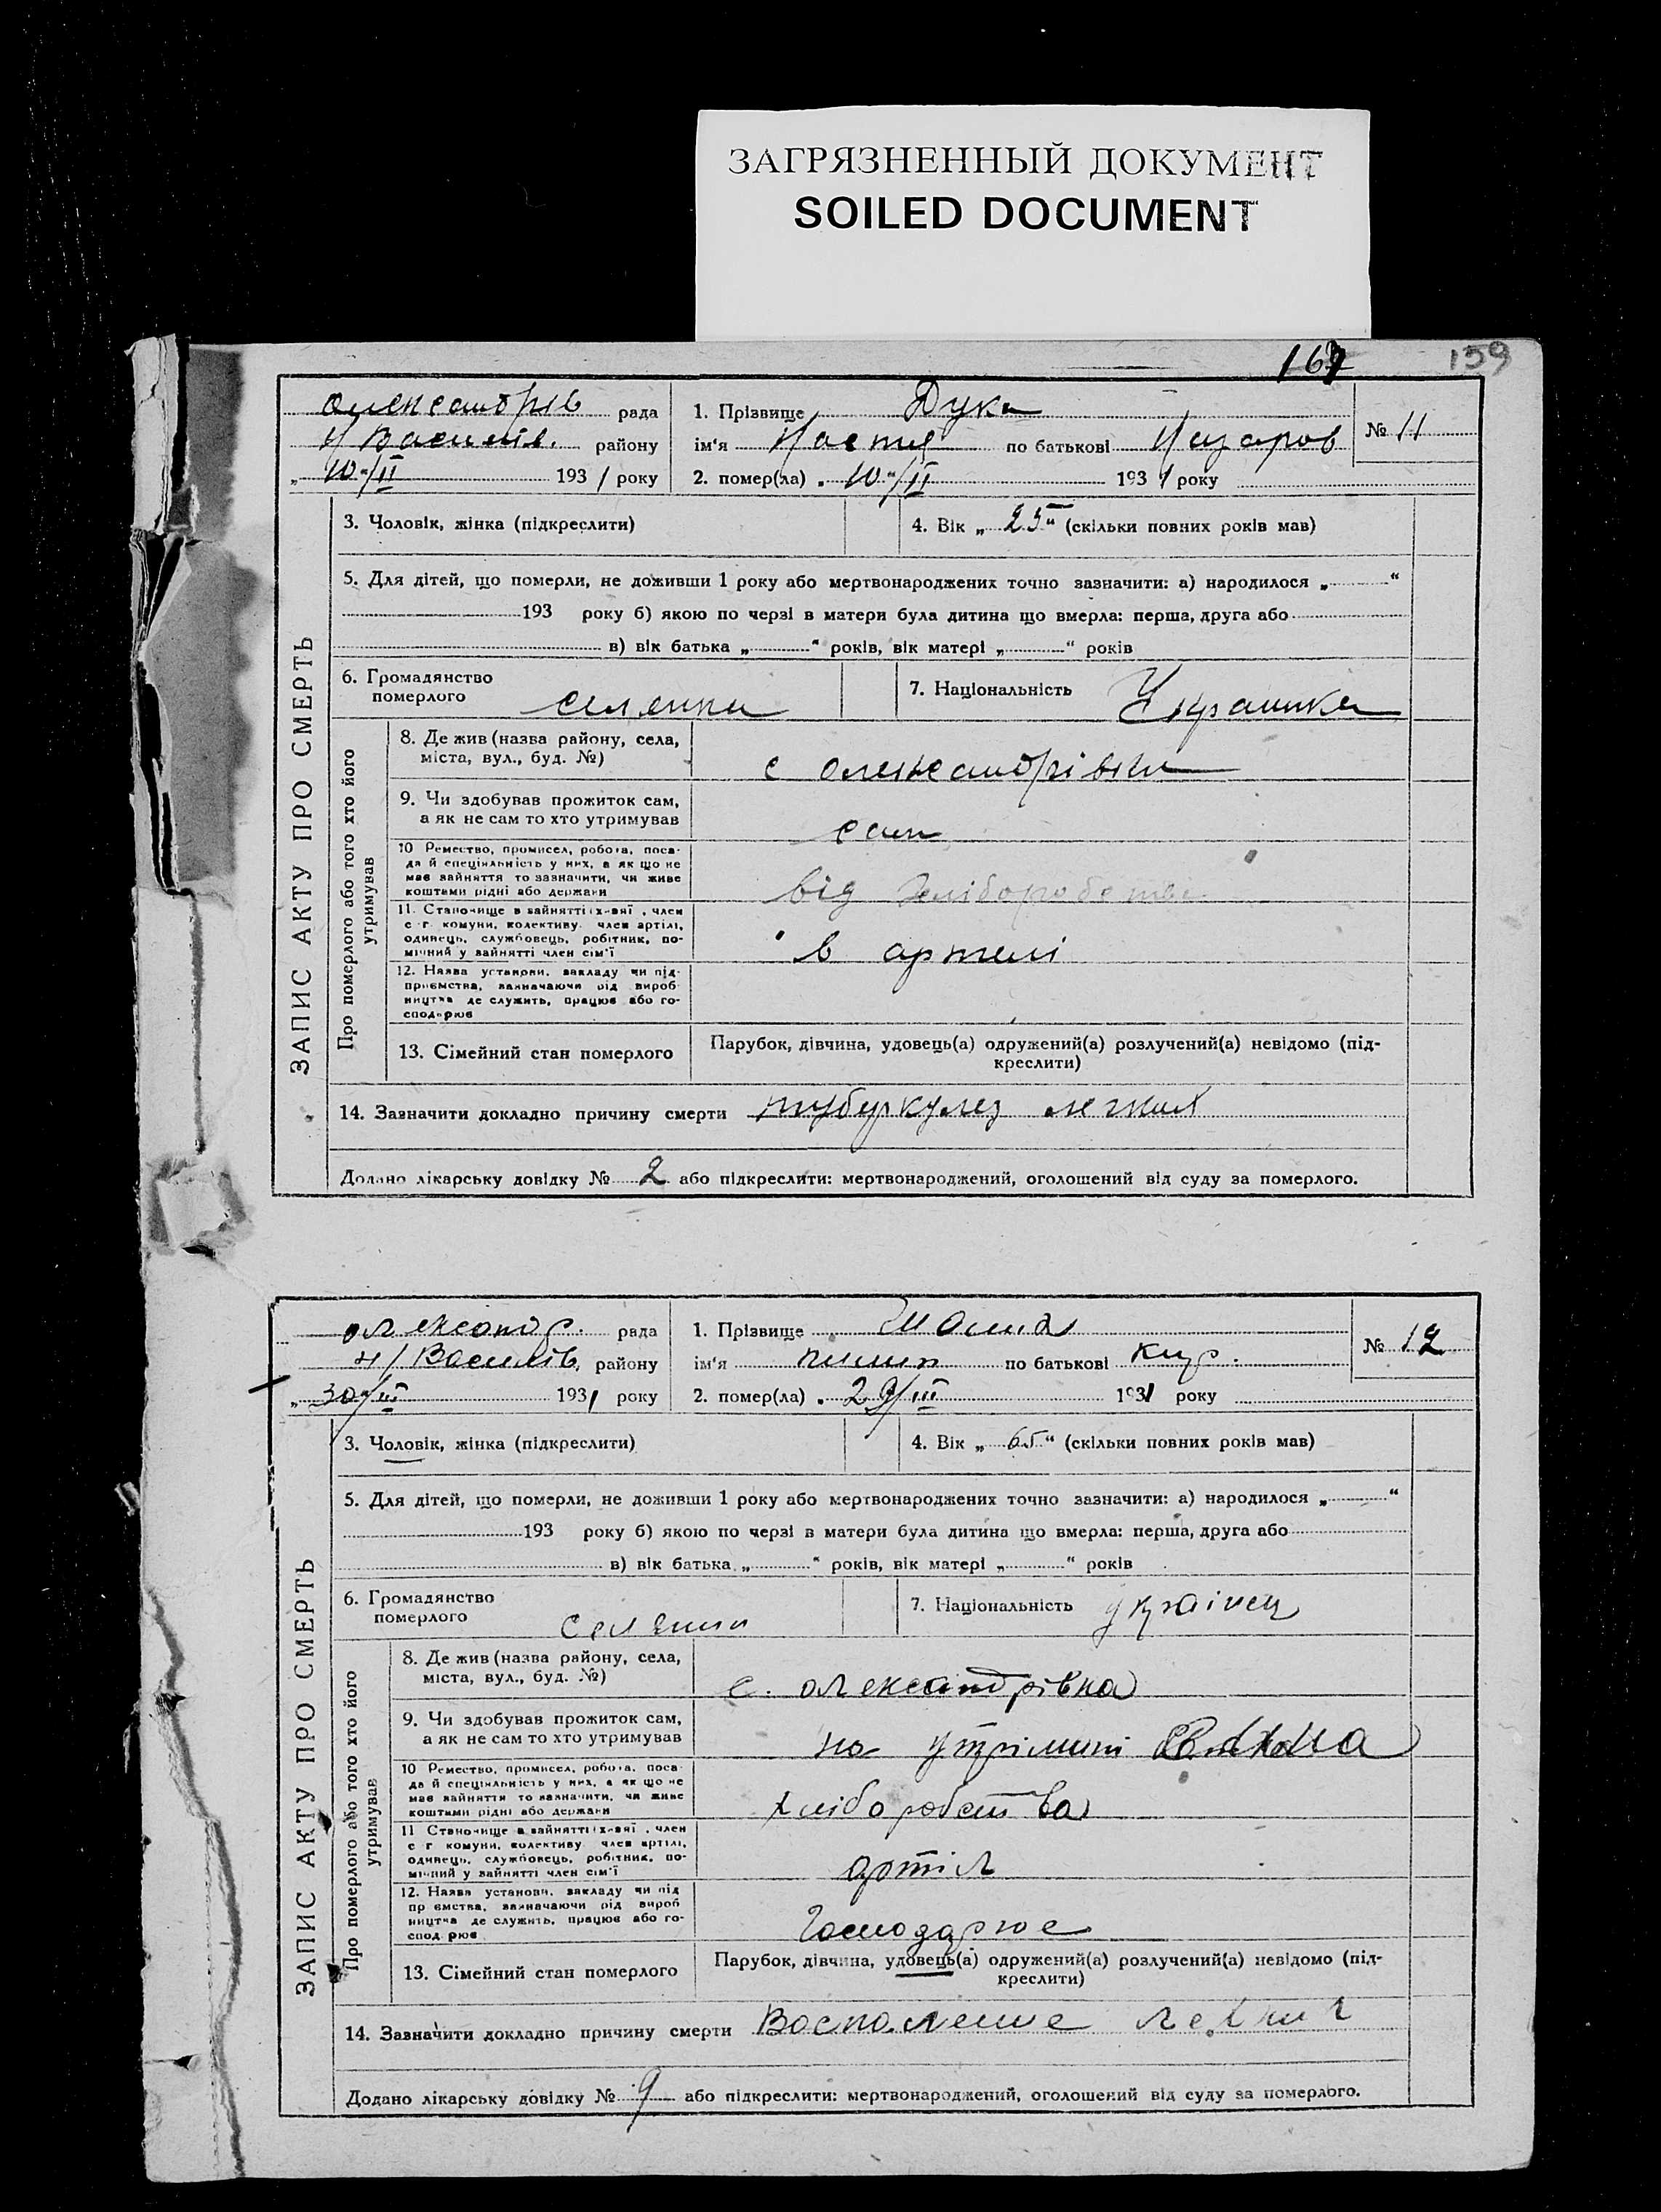 ЗАГРЯЗНЕННЫЙ ДОКУМЕНТ
SOILED DOCUMENT
159
Олександрів рада
Н Василів. району
„10"/II 1931 року
1. Прізвище Дука
ім'я Настя по батькові Назаров
№ 11
2. помер(ла) „10"/II 1931 року
3. Чоловік, жінка (підкреслити)
4. Вік „25" (скільки повних років мав)
5. Для дітей, що померли, не доживши 1 року або мертвонароджених точно зазначити: а) народилося „ "
193 року б) якою по черзі в матери була дитина що вмерла: перша, друга або
в) вік батька „ " років, вік матері „ " років
6. Громадянство
померлого селянка
7. Національність Украинка
ЗАПИС АКТУ ПРО СМЕРТЬ
Про померлого або того хто його
утримував
8. Де жив (назва району, села,
міста, вул., буд. №)
с Олександрівка
9. Чи здобував прожиток сам,
а як не сам то хто утримував
сам
10 Ремество, промисел, робота, поса-
да й спеціяльність у них, а як що не
має зайняття то зазначити, чи живе
коштами рідні або держави
від хліборобства
11. Становище в зайнятті: , член
с г. комуни, колективу член артілі,
одинець, службовець, робітник, по-
мічний у зайнятті член сім'ї
в артелі
12. Назва установи, закладу чи під-
приємства, зазначаючи рід вироб-
ництва де служить, працює або го-
сподарює
13. Сімейний стан померлого
Парубок, дівчина, удовець(а) одружений(а) розлучений(а) невідомо (під-
креслити)
14. Зазначити докладно причину смерти туберкулез легких
Додано лікарську довідку № 2 або підкреслити: мертвонароджений, оголошений від суду за померлого.
Олександр. рада
Н/Василів. району
„30"/III 1931 року
1. Прізвище
ім'я Пилип по батькові Кир.
№ 12
2. помер(ла) „29/III 1931 року
3. Чоловік, жінка (підкреслити)
4. Вік „65" (скільки повних років мав)
5. Для дітей, що померли, не доживши 1 року або мертвонароджених точно зазначити: а) народилося „ "
193 року б) якою по черзі в матери була дитина що вмерла: перша, друга або
в) вік батька „ " років, вік матері „ " років
6. Громадянство
померлого селянин
7. Національність українец
ЗАПИС АКТУ ПРО СМЕРТЬ
Про померлого або того хто його
утримував
8. Де жив (назва району, села,
міста, вул., буд. №)
с. Олександрівка
9. Чи здобував прожиток сам,
а як не сам то хто утримував
на утрімині
10 Ремество, промисел, робота, поса-
да й спеціяльність у них, а як що не
має зайняття то зазначити, чи живе
коштами рідні або держави
хліборобства
11 Становище в зайнятті: , член
с г комуни, колективу член артілі,
одинець, службовець, робітник, по-
мічний у зайнятті член сім'ї
артіл
12. Назва установи, закладу чи під
пр ємства, зазначаючи рід вироб
ництва де служить, працює або го-
спод рює
Господарює
13. Сімейний стан померлого
Парубок, дівчина, удовець(а) одружений(а) розлучений(а) невідомо (під-
креслити)
14. Зазначити докладно причину смерти Воспаление легких
Додано лікарську довідку № 9 або підкреслити: мертвонароджений, оголошений від суду за померлого.